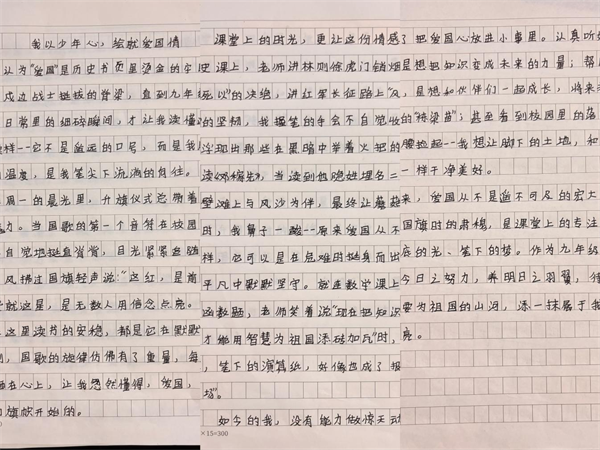 我以少年心，绘就爱国情
认为“爱国”是历史书页里烫金的字
戍边战士挺拔的脊梁，直到九年
日常里的细碎瞬间，才让我读懂
样--它不是遥远的口号，而是我
温度，是我笔尖下流淌的向往。
周一的晨光里，升旗仪式总带着
力。当国歌的第一个音符在校园
自觉地挺直脊背，目光紧紧
风拂过国旗轻声说：“这红，是
就这星，是无数人用信念点亮。
这里读书的安稳，都是它在默默
国歌的旋律仿佛有了重量，每
在心上，让我忽然懂得，爱国，
旗帜开始的。
课堂上的时光，更让这份情感
史课上，老师讲林则徐虎门销烟
死以”的决绝，讲红军长征路上“风
的坚韧，我握笔的手会不自觉收
浮现出那些在黑暗中举着火把的
读《邓稼先》，当读到他隐姓埋名二
壁滩上与风沙为伴，最终让蘑菇
时，我鼻子一酸--原来爱国从不
样，它可以是在危难时挺身而出
平凡中默默坚守。就连数学课上
函数题，老师笑着说“现在把知识
才能用智慧为祖国添砖加瓦”时，
，笔下的演算纸，好像也成了报
场”。
如今的我，没有能力做惊天动
×15=300
了把爱国心放进小事里。认真听
是想把知识变成未来的力量；帮
，是想和伙伴们一起成长，将来
的“栋梁苗”；甚至看到校园里的落
腰捡起--我想让脚下的土地，和
一样干净美好。
来，爱国从不是遥不可及的宏大
国旗时的肃穆，是课堂上的专注
底的光、笔下的梦。作为九年级
今日之努力，养明日之羽翼，待
要为祖国的山河，添一抹属于我
亮。